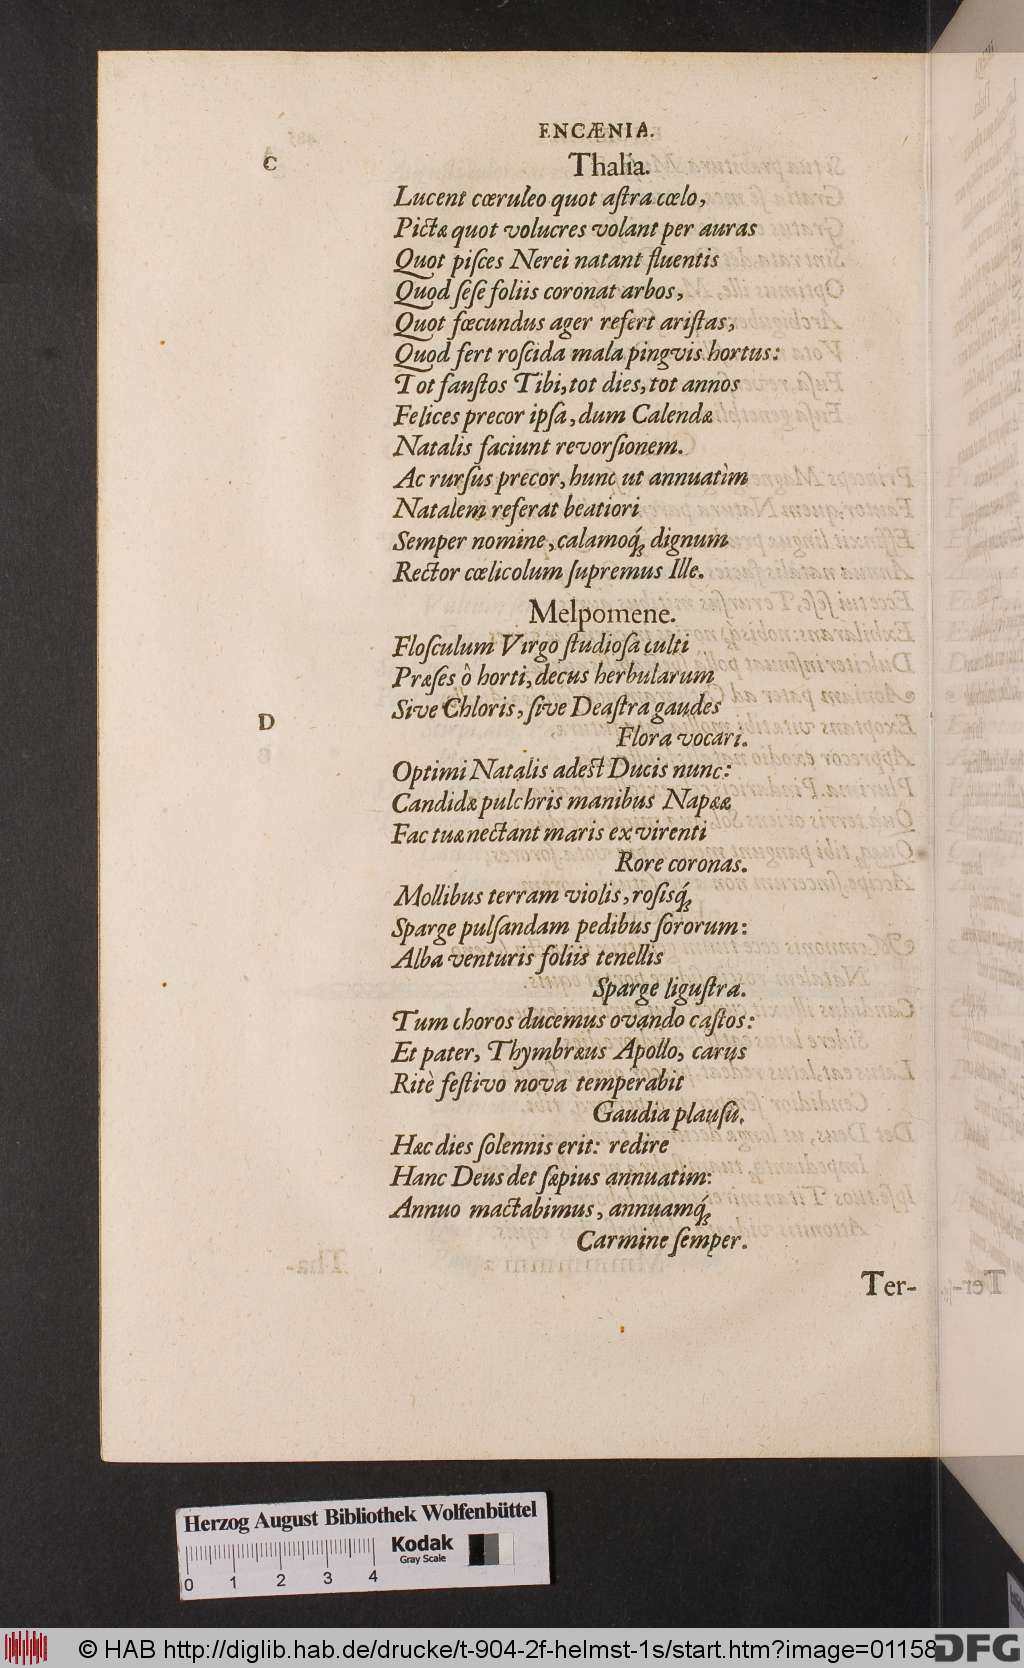 ENCÆNIA.
C
Thalia.
Lucent cœruleo quot aſtra cœlo,
Pictæ quot volucres volant per auras
Quot piſces Nerei natant fluentis
Quod ſeſe foliis coronat arbos,
Quot fœcundus ager refert ariſtas,
Quod fert roſcida mala pingvis hortus:
Tot fanſtos Tibi, tot dies, tot annos
Felices precor ipſa, dum Calendæ
Natalis faciunt revorſionem.
Ac rurſus precor, hunc ut annuatìm
Natalem referat beatiori
Semper nomine, calamoq́; dignum
Rector cœlicolum ſupremus Ille.
Melpomene.
Floſculum Virgo ſtudioſa culti
Præſes ô horti, decus herbularum
Sive Chloris, ſive Deaſtra gaudes
D
Flora vocari.
Optimi Natalis adest Ducis nunc:
Candidæ pulchris manibus Napææ
Fac tuæ nectant maris ex virenti
Rore coronas.
Mollibus terram violis, roſisq́;
Sparge pulſandam pedibus ſororum:
Alba venturis foliis tenellis
Sparge liguſtra.
Tum choros ducemus ovando caſtos:
Et pater, Thymbræus Apollo, carus
Ritè feſtivo nova temperabit
Gaudia plauſu.
Hæc dies ſolennis erit: redire
Hanc Deus det ſæpius annuatim:
Annuo mactabimus, annuamq́;
Carmine ſemper.
Ter-
Herzog August Bibliothek Wolfenbüttel
Kodak
Gray Scale
0 1 2 3 4
© HAB http://diglib.hab.de/drucke/t-904-2f-helmst-1s/start.htm?image=01158
DFG